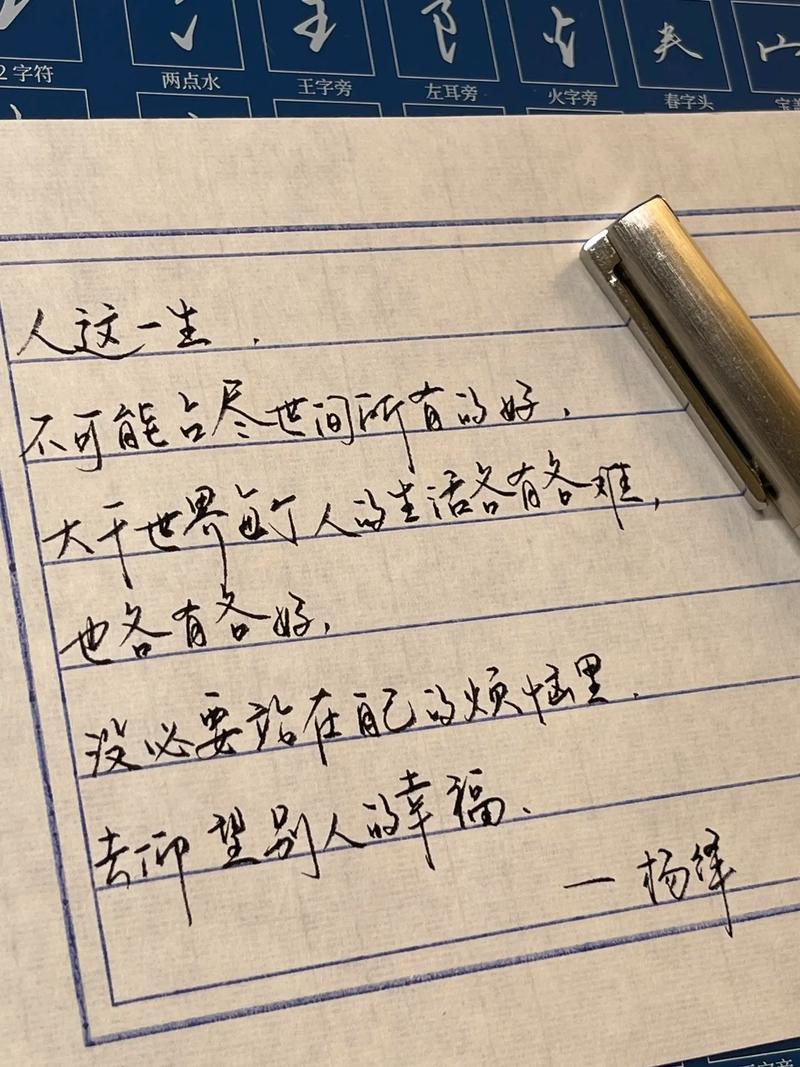 2字符
两点水
王字旁
左耳旁
火字旁
春字头
人这一生.
不可能占尽世间所有的好,
大千世界每个人的生活各有各难,
也各有各好,
没必要站在自己的烦恼里.
去仰望别人的幸福.
— 杨绛